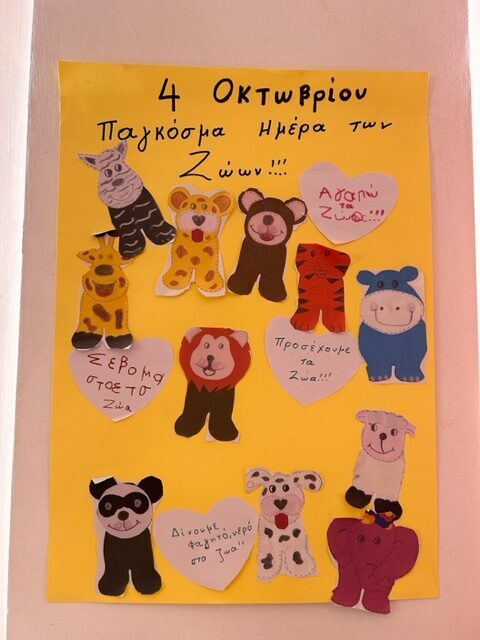 4 Οκτωβρίου
Παγκόσμα Ημέρα των
Ζώων!!!
Αγαπώ
τα
Ζώα!!!
Προσέχουμε
τα
Ζώα!!!
Σέβομα
Ζώα
Δίνουμε
φαγητό, νερό
στα ζωα!!